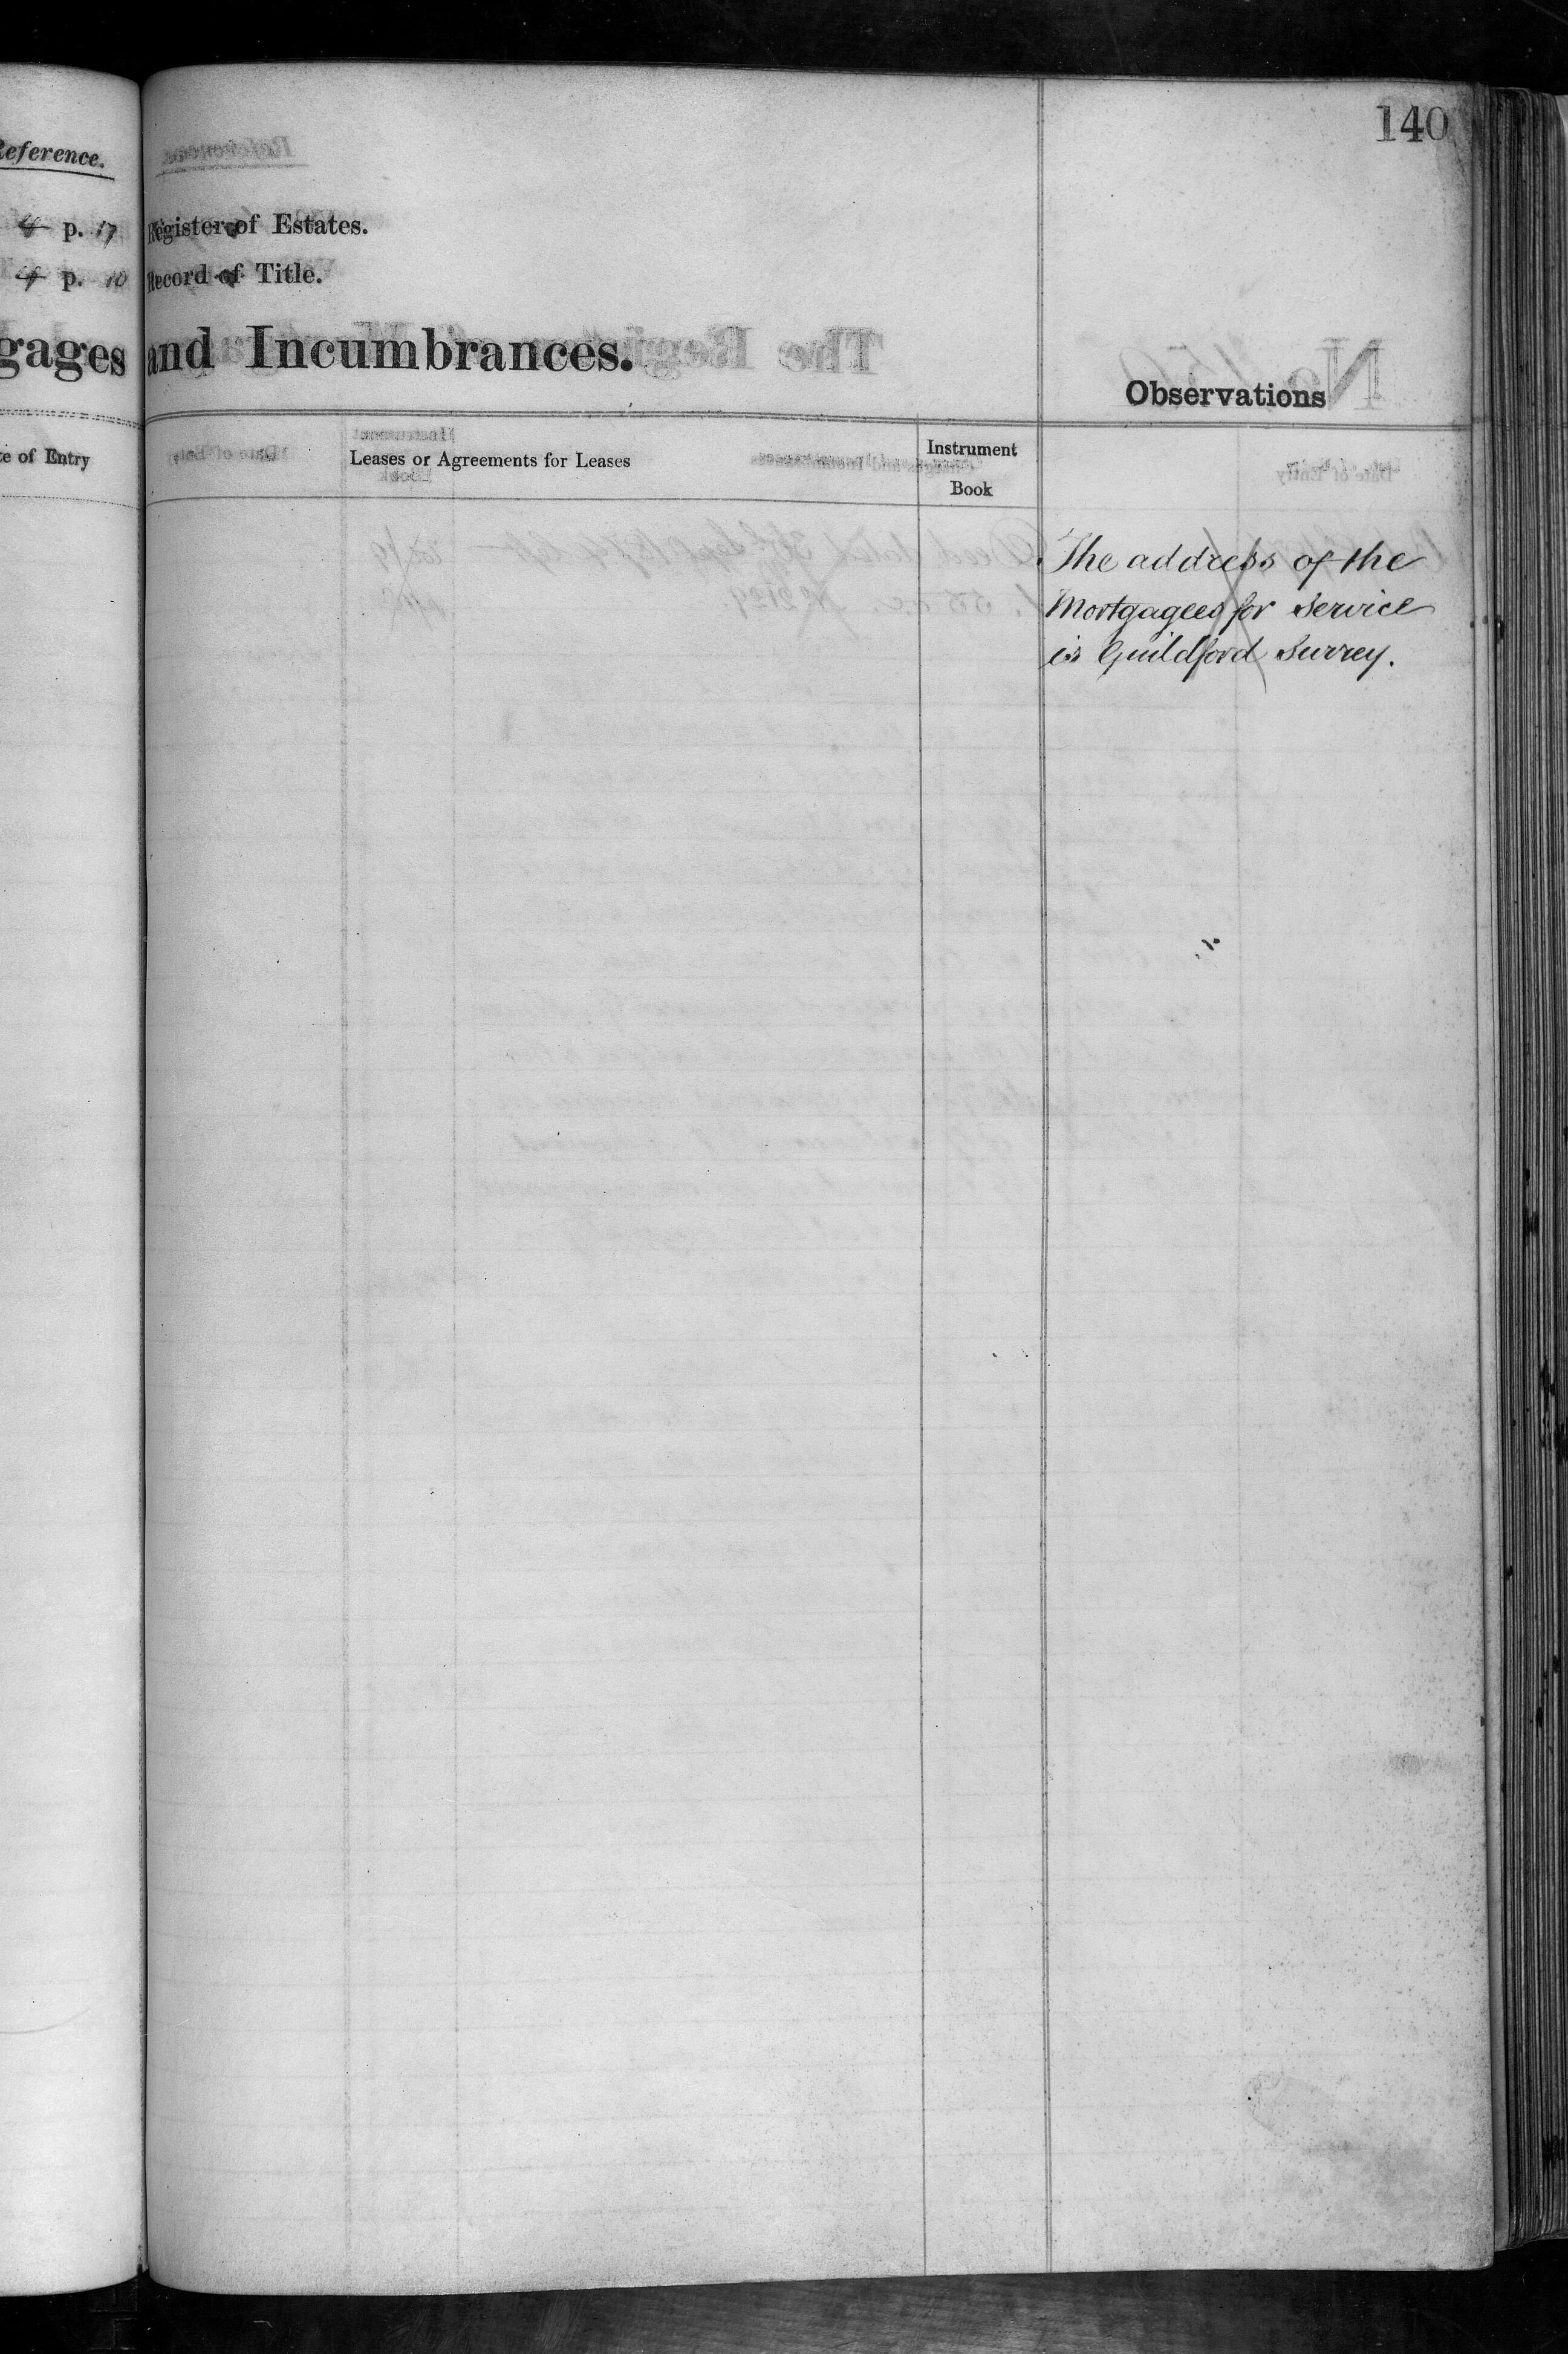 140
Reference.
p. 17 Register of Estates.
p. 10 Record of Title.
gages and Incumbrances.
Observations
te of Entry
Leases or Agreements for Leases
Instrument
Book
The address of the
Mortgagees for Service
is Guildford Surrey.